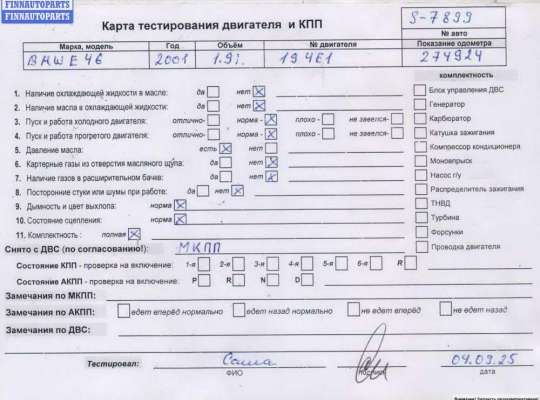 FINNAUTOPARTS
FINNAUTOPARTS
Карта тестирования двигателя и КПП
S-7899
№ авто
Марка, модель Год Объём № двигателя Показание одометра
BMW E46 2001 1.9i 194E1 274924
комплектность
1. Наличие охлаждающей жидкости в масле: да нет
2. Наличие масла в охлаждающей жидкости: да нет
3. Пуск и работа холодного двигателя: отлично- норма - плохо - не завелся-
4. Пуск и работа прогретого двигателя: отлично- норма - плохо - не завелся-
5. Давление масла: есть нет
6. Картерные газы из отверстия масляного щупа: да нет
7. Наличие газов в расширительном бачке: да нет
8. Посторонние стуки или шумы при работе: да нет
9. Дымность и цвет выхлопа: норма
10. Состояние сцепления: норма
11. Комплектность : полная
Блок управления ДВС
Генератор
Карбюратор
Катушка зажигания
Компрессор кондиционера
Моновпрыск
Насос г/у
Распределитель зажигания
ТНВД
Турбина
Форсунки
Проводка двигателя
Снято с ДВС (по согласованию!): МКПП
Состояние КПП - проверка на включение: 1-я 2-я 3-я 4-я 5-я 6-я R
Состояние АКПП - проверка на включение: P R N D
Замечания по МКПП:
Замечания по АКПП: едет вперёд нормально едет назад нормально не едет вперёд не едет назад
Замечания по ДВС:
Тестировал: Саша 04.09.25
ФИО подпись дата